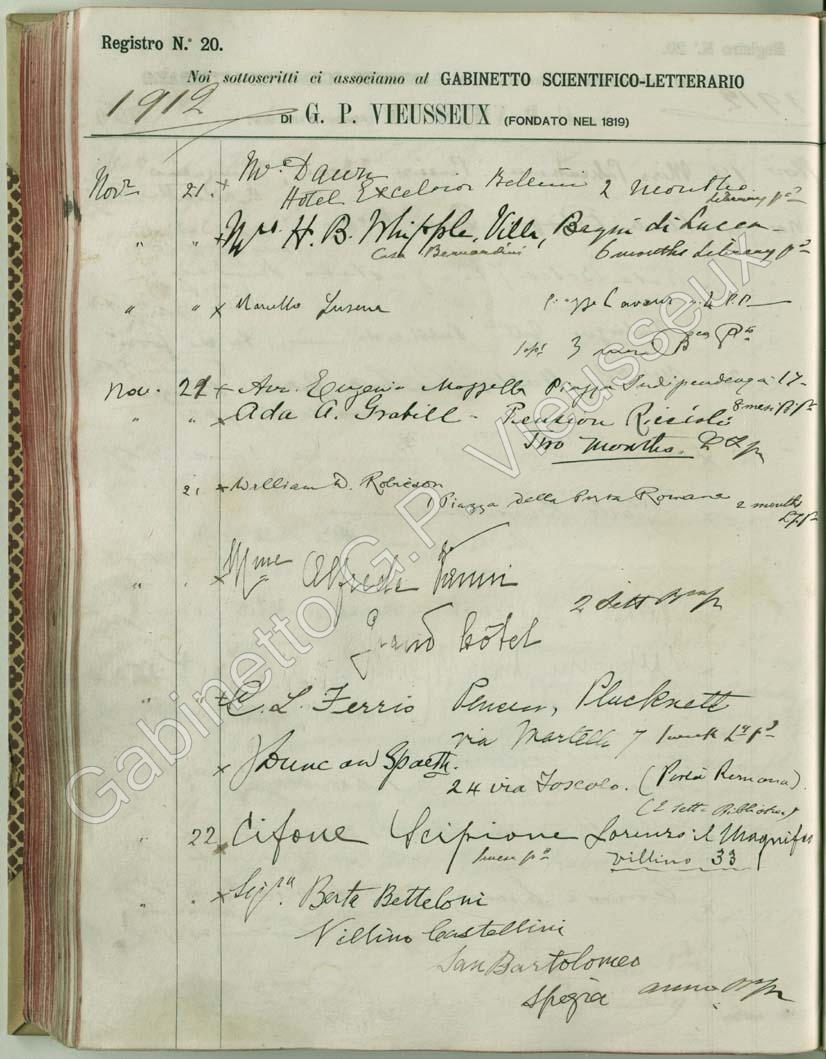 Registro N.° 20.
Noi sottoscritti ci associamo al GABINETTO SCIENTIFICO-LETTERARIO
1912
DI G. P. VIEUSSEUX (FONDATO NEL 1819)
Nov. 21. x Dawn
Hotel Excelsior Bellini 2 months
library pd
" " x Mrs H. B. Whipple, Villa, Bagni di Lucca
Casa Bernardini 6 months Library pd
" " x
3 mesi
Nov. 21 x Avv. Eugenio Mozzella Piazza Indipendenza 17
" " x Ada A. Grabill - Pension Riccioli
Two months.
21 x William D. Robieson
1 Piazza della Porta Romana 2 months
" " x Mme Alfredo Vanni
2 Sett
Grand Hôtel
" " x C. L. Ferris Pension, Plucknett
via Martelli 7 1 week
x J Duncan Spaeth.
24 via Foscolo. (Porta Romana).
" 22 x Cifone Scipione Lorenzo il Magnifico
villino 33
" " x Sigra Berta Betteloni
Villino Castellini
San Bartolomeo
Spezia anno
Gabinetto G.P. Vieusseux